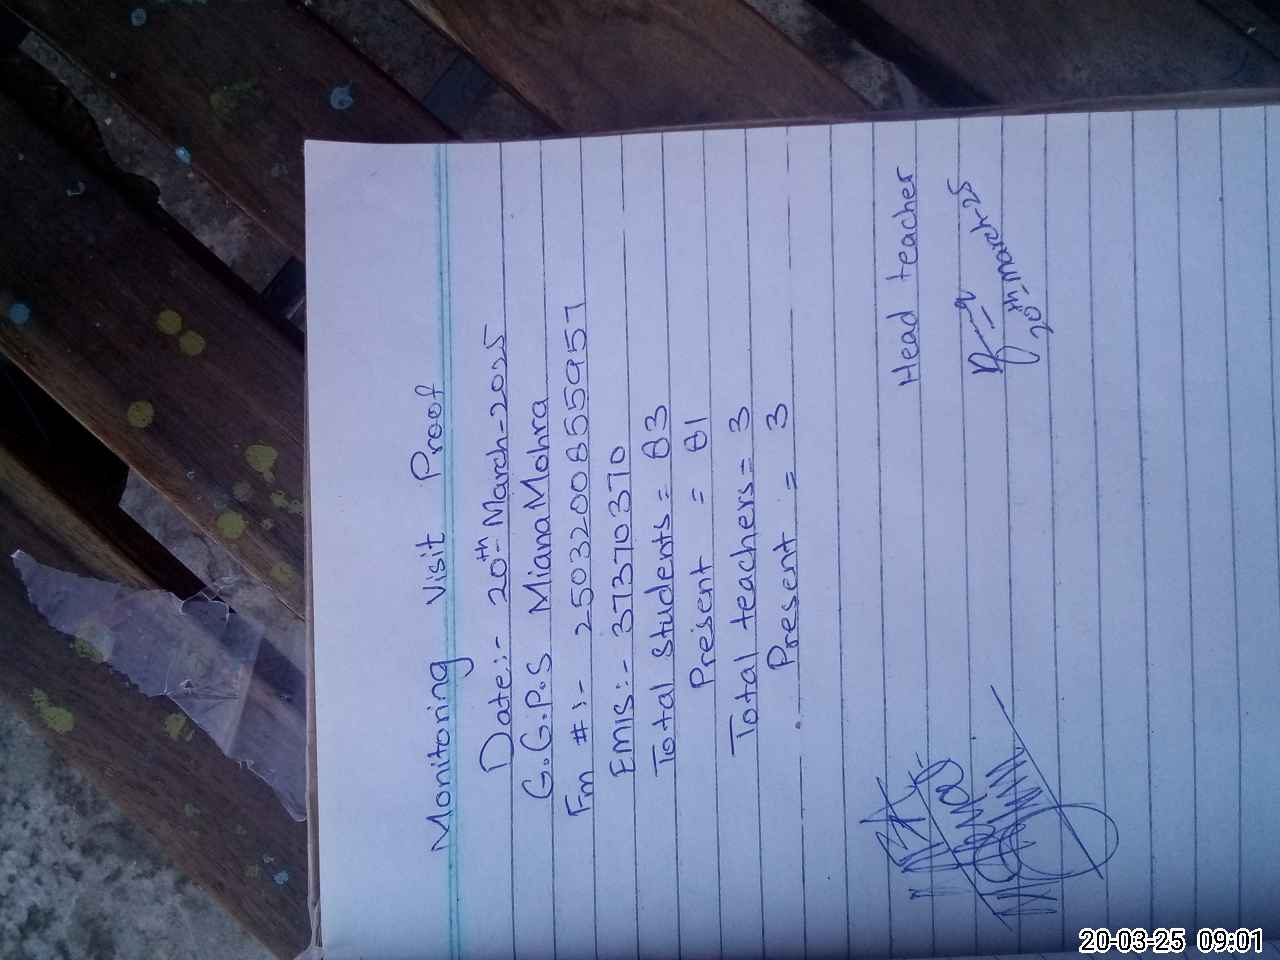 Monitoring Visit Proof
Date:- 20th-March-2025
G.G.P.S Miana Mohra
Fm #:- 2503200855957
EMIS:- 37370370
Total students = 83
Present = 81
Total teachers = 3
Present = 3
Head teacher
20th-march-25
20-03-25 09:01